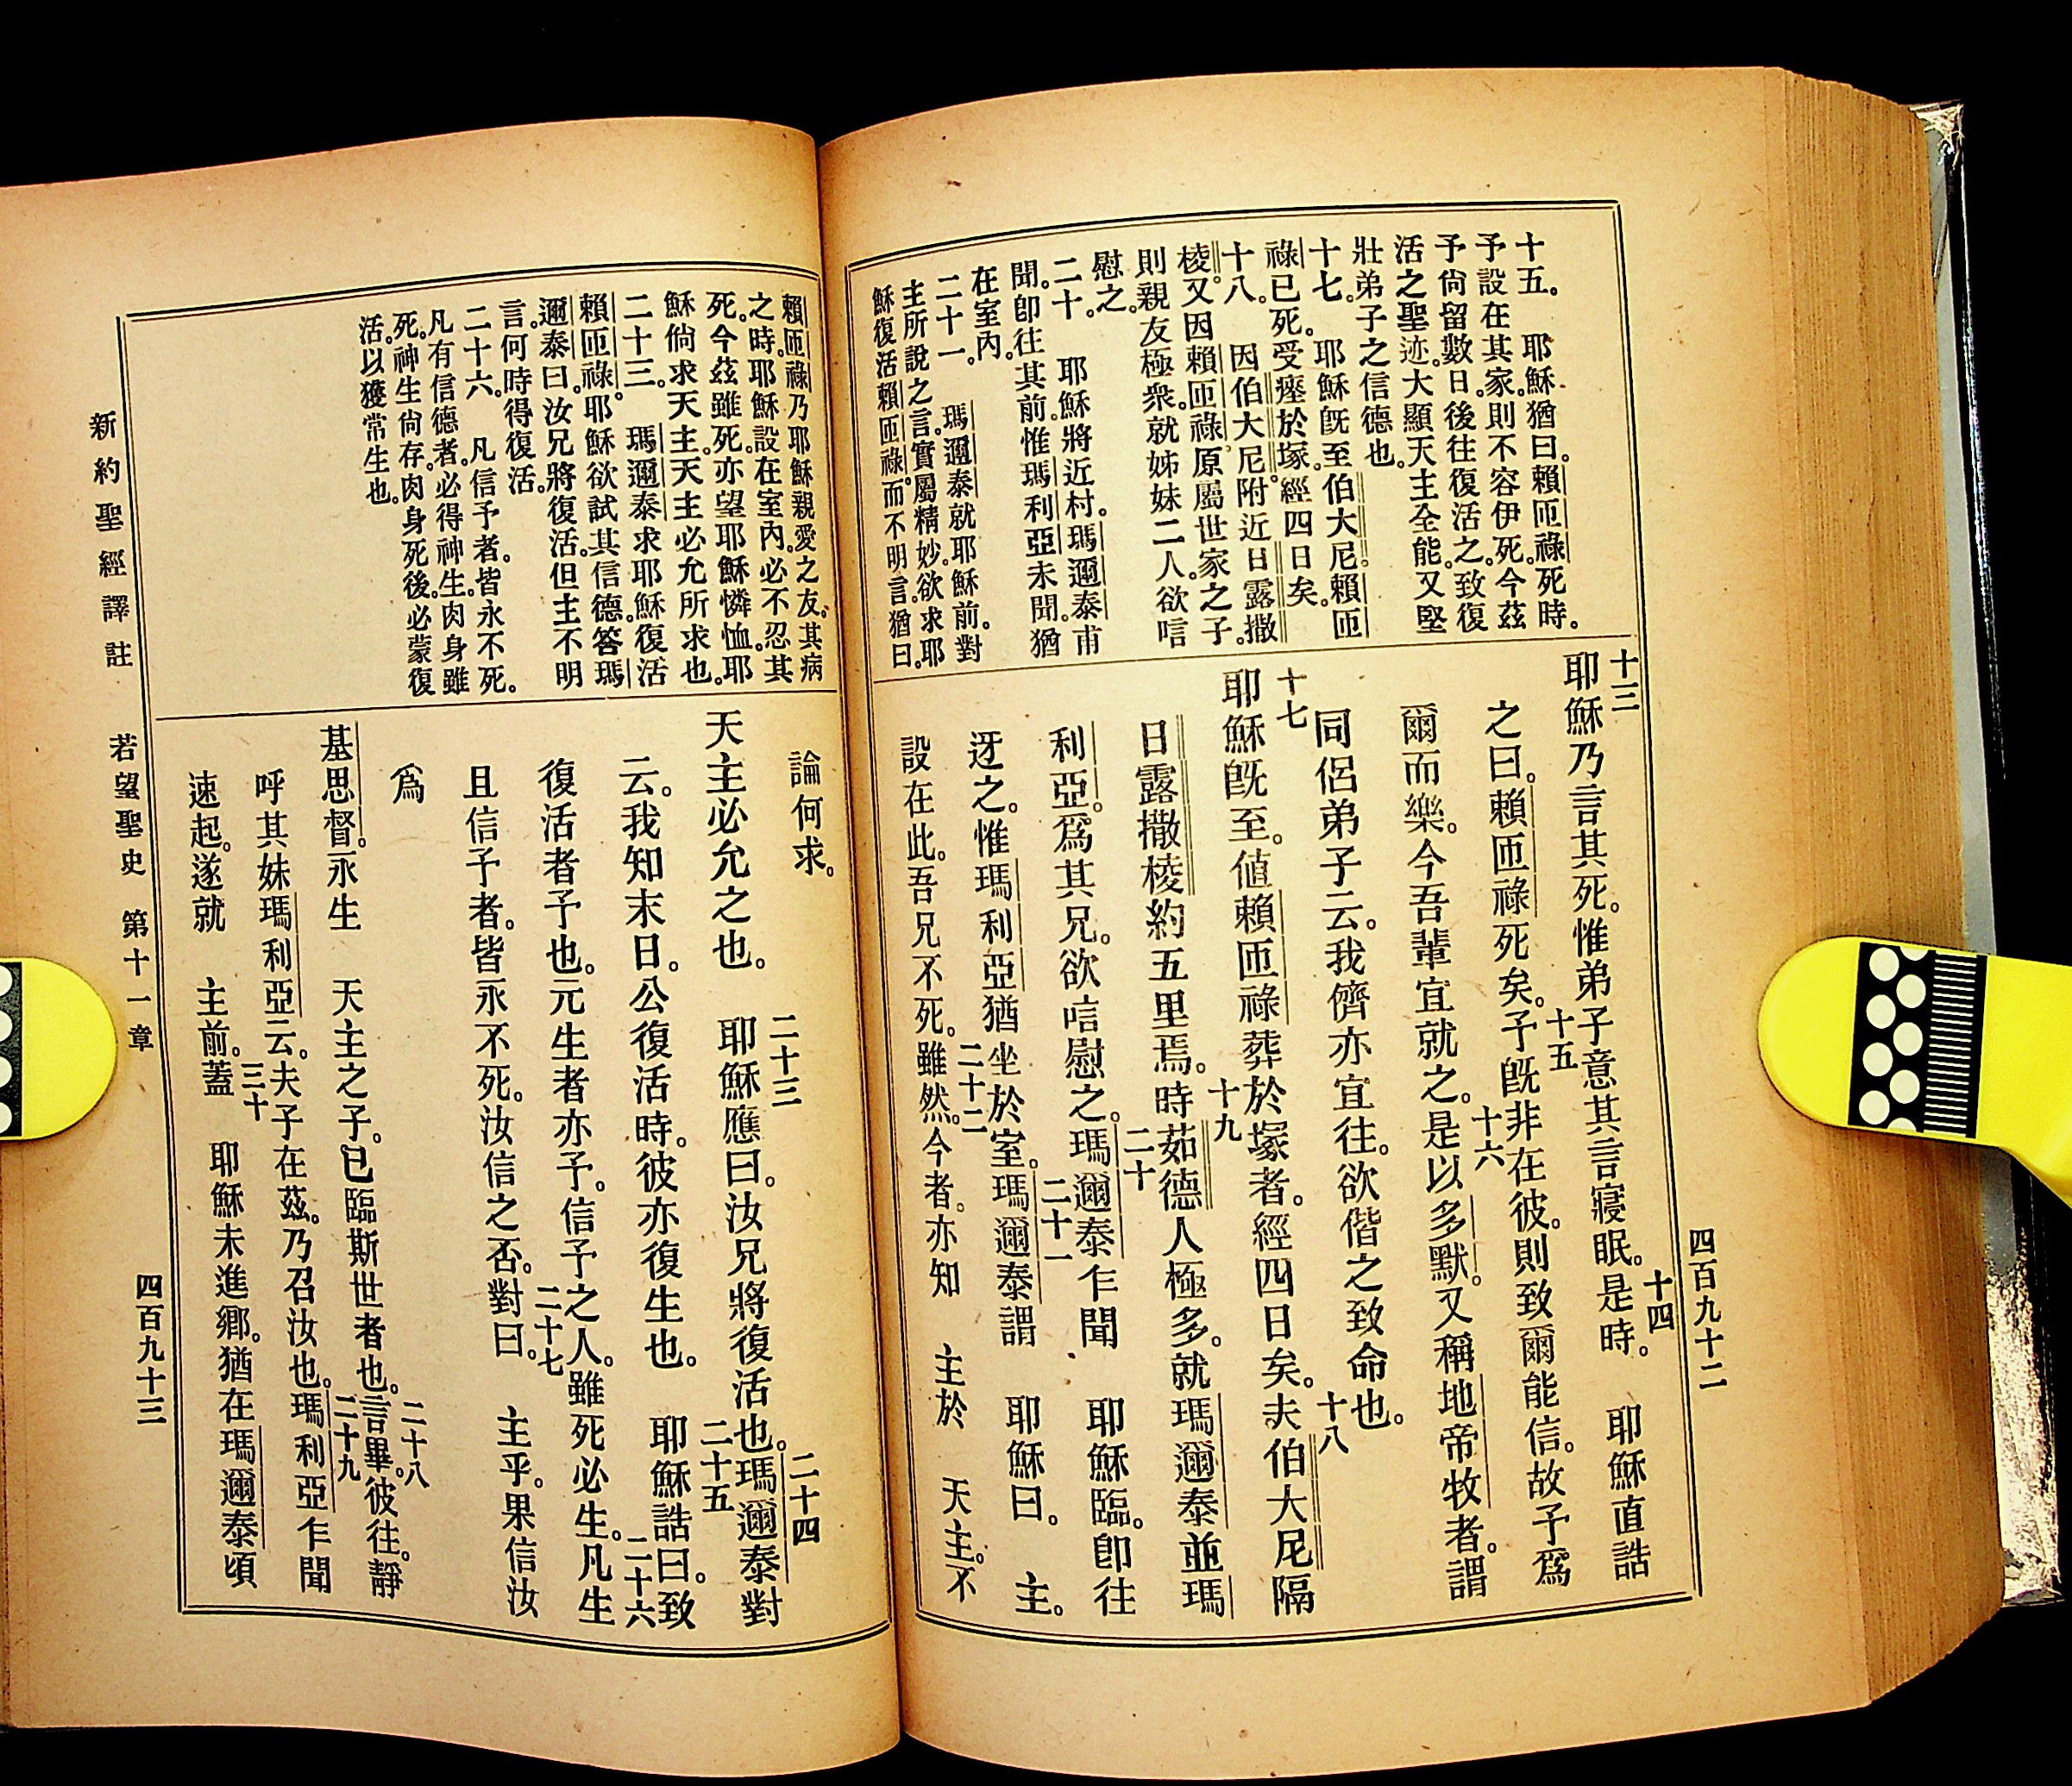 四百九十二
十五。　耶穌猶曰。賴匝祿死時。
予設在其家。則不容伊死。今茲
予尙留數日。後往復活之。致復
活之聖迹。大顯天主全能。又堅
壯弟子之信德也。
十七。　耶穌旣至伯大尼。賴匝
祿已死。受瘞於塚。經四日矣。
十八。　因伯大尼附近日露撒
棱。又因賴匝祿。原屬世家之子。
則親友極衆。就姊妹二人。欲唁
慰之。
二十。　耶穌將近村。瑪邇泰甫
聞。卽往其前。惟瑪利亞未聞。猶
在室內。
二十一。　瑪邇泰就耶穌前。對
主所說之言。實屬精妙。欲求耶
穌復活賴匝祿。而不明言。猶曰。
十三
耶穌乃言其死。惟弟子意其言寢眠。十四是時。　耶穌直誥
之曰。賴匝祿死矣。十五予旣非在彼。則致爾能信。故予爲
爾而樂。今吾輩宜就之。十六是以多默。又稱地帝牧者。謂
同侶弟子云。我儕亦宜往。欲偕之致命也。
十七
耶穌旣至。値賴匝祿葬於塚者。經四日矣。十八夫伯大尼隔
日露撒棱約五里焉。十九時茹德人極多。就瑪邇泰並瑪
利亞。爲其兄。欲唁慰之。二十瑪邇泰乍聞　耶穌臨。卽往
迓之。惟瑪利亞猶坐於室。二十一瑪邇泰謂　耶穌曰。　主。
設在此。吾兄不死。二十二雖然。今者。亦知　主於　天主。不
賴匝祿乃耶穌親愛之友。其病
之時。耶穌設在室內。必不忍其
死。今茲雖死。亦望耶穌憐恤。耶
穌倘求天主。天主必允所求也。
二十三。　瑪邇泰求耶穌復活
賴匝祿。耶穌欲試其信德。答瑪
邇泰曰。汝兄將復活。但主不明
言。何時得復活。
二十六。　凡信予者。皆永不死。
凡有信德者。必得神生。肉身雖
死。神生尙存。肉身死後。必蒙復
活。以獲常生也。
論何求。
天主必允之也。　二十三耶穌應曰。汝兄將復活也。二十四瑪邇泰對
云。我知末日。公復活時。彼亦復生也。　二十五耶穌誥曰。致
復活者予也。元生者亦予。信予之人。雖死必生。二十六凡生
且信予者。皆永不死。汝信之否。二十七對曰。　主乎。果信汝
爲
基思督。永生　天主之子。已臨斯世者也。二十八言畢。彼往。靜
呼其妹瑪利亞云。夫子在茲。乃召汝也。二十九瑪利亞乍聞
速起。遂就　主前。三十蓋　耶穌未進鄉。猶在瑪邇泰頃
新約聖經譯註　若望聖史　第十一章　四百九十三